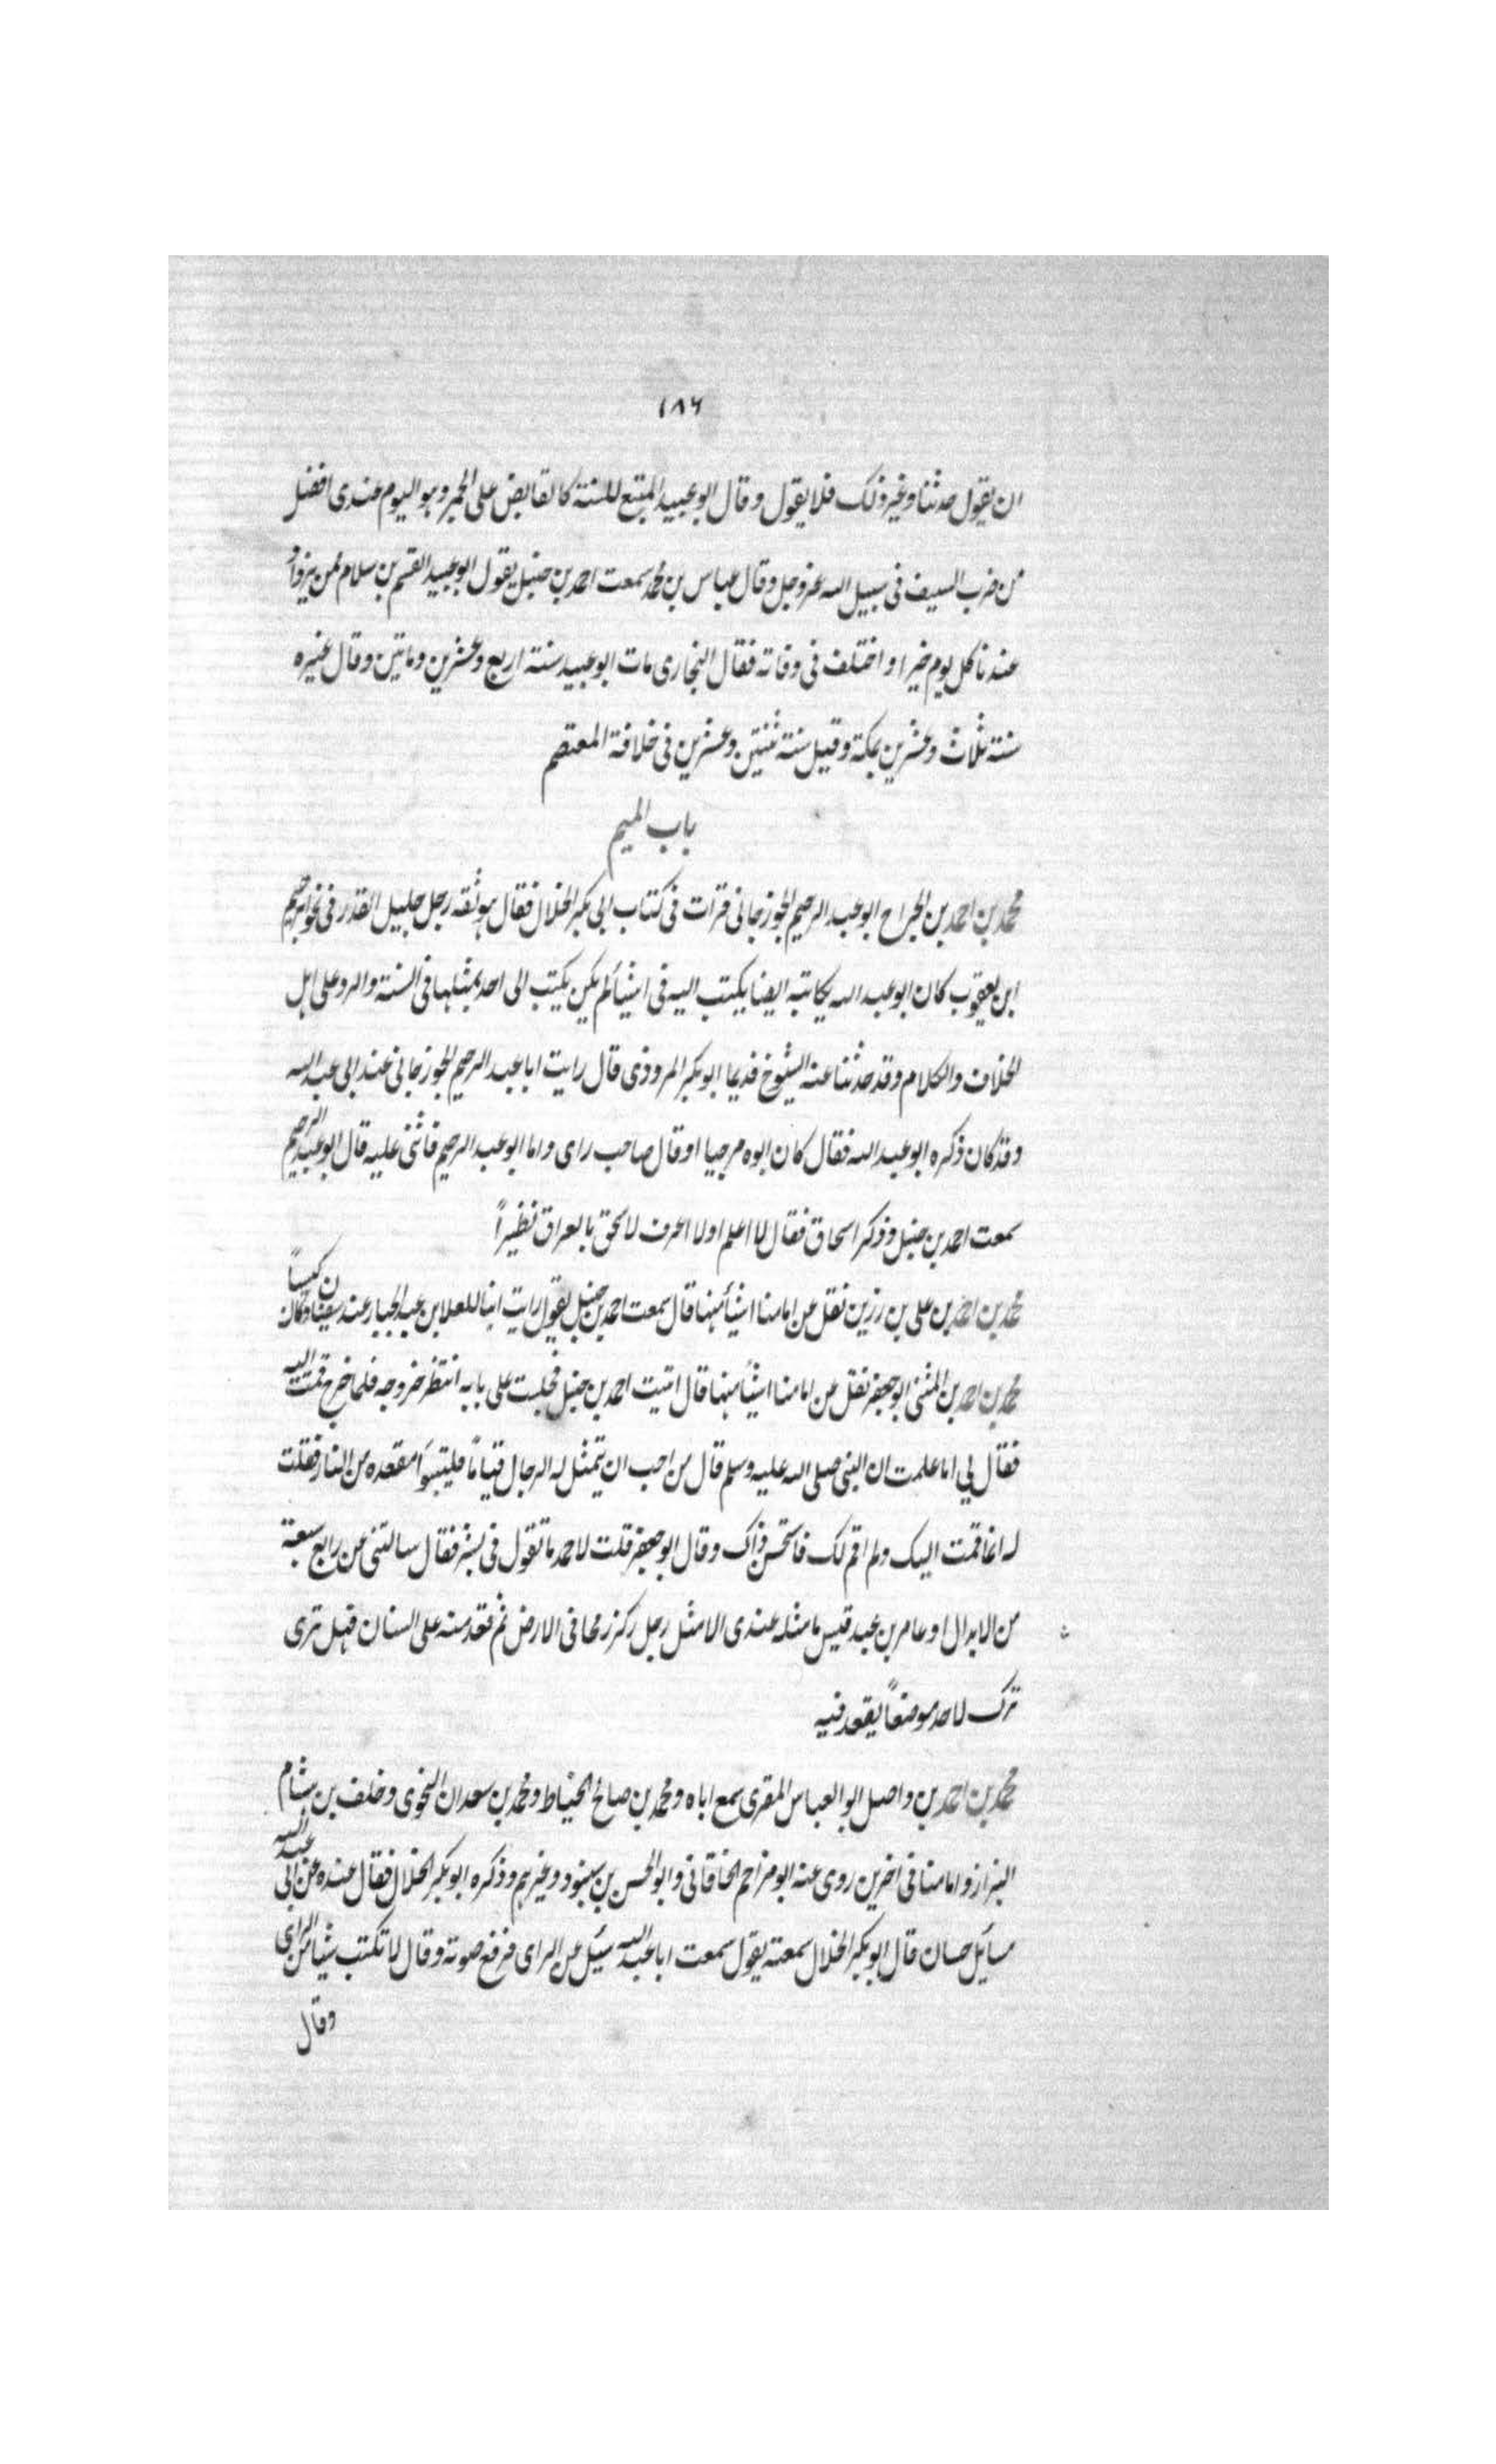 ١٨٦
ان يقول حدثنا وغير ذلك فلا يقول وقال ابو عبيد المتبع للسنة كالقابض على الجمر وهو اليوم عندى افضل
من ضرب السيف فى سبيل الله عز وجل وقال عباس بن محمد سمعت احمد بن حنبل يقول ابو عبيد القسم بن سلام ممن يزداد
عندنا كل يوم خيرا واختلف فى وفاته فقال البخارى مات ابو عبيد سنة اربع وعشرين وماتين وقال غيره
سنة ثلاث وعشرين بمكة وقيل سنة ثنتين وعشرين فى خلافة المعتصم
باب الميم
محمد بن احمد بن الجراح ابو عبد الرحيم الجوزجانى قرات فى كتاب ابى بكر الخلال فقال هو ثقة رجل جليل القدر فى نحو ابرهيم
ابن يعقوب كان ابو عبد الله يكاتبه ايضا يكتب اليه فى اشيأ لم يكن يكتب الى احد بمثلها فى السنة والرد على اهل
الخلاف والكلام وقد حدثنا عنه الشيوخ قديما ابو بكر المروذى قال رايت ابا عبد الرحيم الجوزجانى عند ابى عبد الله
وقد كان ذكره ابو عبد الله فقال كان ابوه مرجيا او قال صاحب راى واما ابو عبد الرحيم فاثنى عليه قال ابو عبد الرحيم
سمعت احمد بن حنبل وذكر اسحاق فقال لا اعلم او لا اعرف لاسحق بالعراق نظيراً
محمد بن احمد بن على بن رزين نقل عن امامنا اشيأ منها قال سمعت احمد بن حنبل يقول رايت ابنا للعلا بن عبد الجبار عند سفين وكان كيساً
محمد بن احمد بن المثنى ابو جعفر نقل عن امامنا اشيأ منها قال اتيت احمد بن حنبل فجلست على بابه انتظر خروجه فلما خرج قمت اليه
فقال لي اما علمت ان النبى صلى الله عليه وسلم قال من احب ان يتمثل له الرجال قياماً فليتبوأ مقعده من النار فقلت
له انما قمت اليك ولم اقم لك فاستحسن ذاك وقال ابو جعفر قلت لاحمد ما تقول فى بشر فقال سالتنى عن رابع سبعة
من الابدال او عامر بن عبد قيس ما مثله عندى الا مثل رجل ركز رمحا فى الارض ثم قعد منه على السنان فهل ترى
ترك لاحد موضعاً يقعد فيه
محمد بن احمد بن واصل ابو العباس المقرى سمع اباه ومحمد بن صالح الخياط ومحمد بن سعدان النحوى وخلف بن هشام
البزاز وامامنا فى اخرين روى عنه ابو مزاحم الخاقانى وابو الحسن بن شنبوذ وغيرهم وذكره ابو بكر الخلال فقال عنده عن ابى عبد الله
مسائل حسان قال ابو بكر الخلال سمعته يقول سمعت ابا عبد الله سئل عن الراى فرفع صوته وقال لا تكتب شيا من الراى
وقال